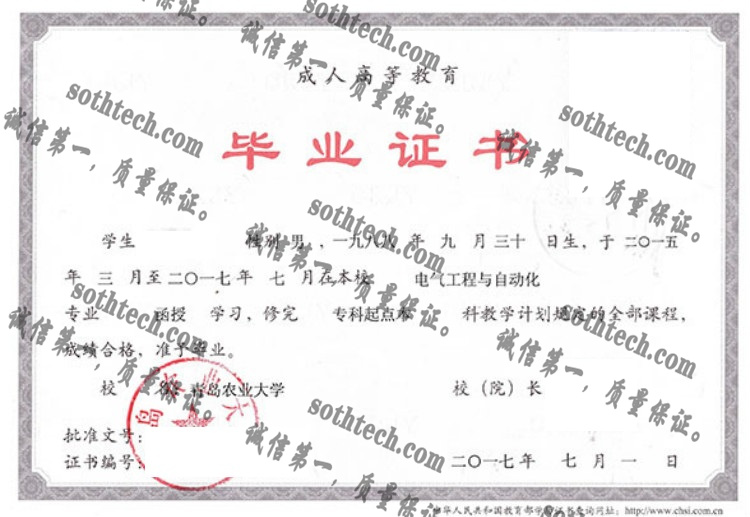 成人高等教育
毕业证书
学生 性别 男 ，一九八八 年 九 月 三十 日生，于 二〇一五
年 三 月至 二〇一七 年 七 月在本校 电气工程与自动化
专业 函授 学习，修完 专科起点本 科教学计划规定的全部课程，
成绩合格，准予毕业。
校 名：青岛农业大学 校（院）长
批准文号：
证书编号：
二〇一七年 七 月 一 日
中华人民共和国教育部学历证书查询网址：http://www.chsi.com.cn
sothtech.com
诚信第一，质量保证。
sothtech.com
诚信第一，质量保证。
sothtech.com
诚信第一，质量保证。
sothtech.com
诚信第一，质量保证。
sothtech.com
诚信第一，质量保证。
sothtech.com
诚信第一，质量保证。
sothtech.com
诚信第一，质量保证。